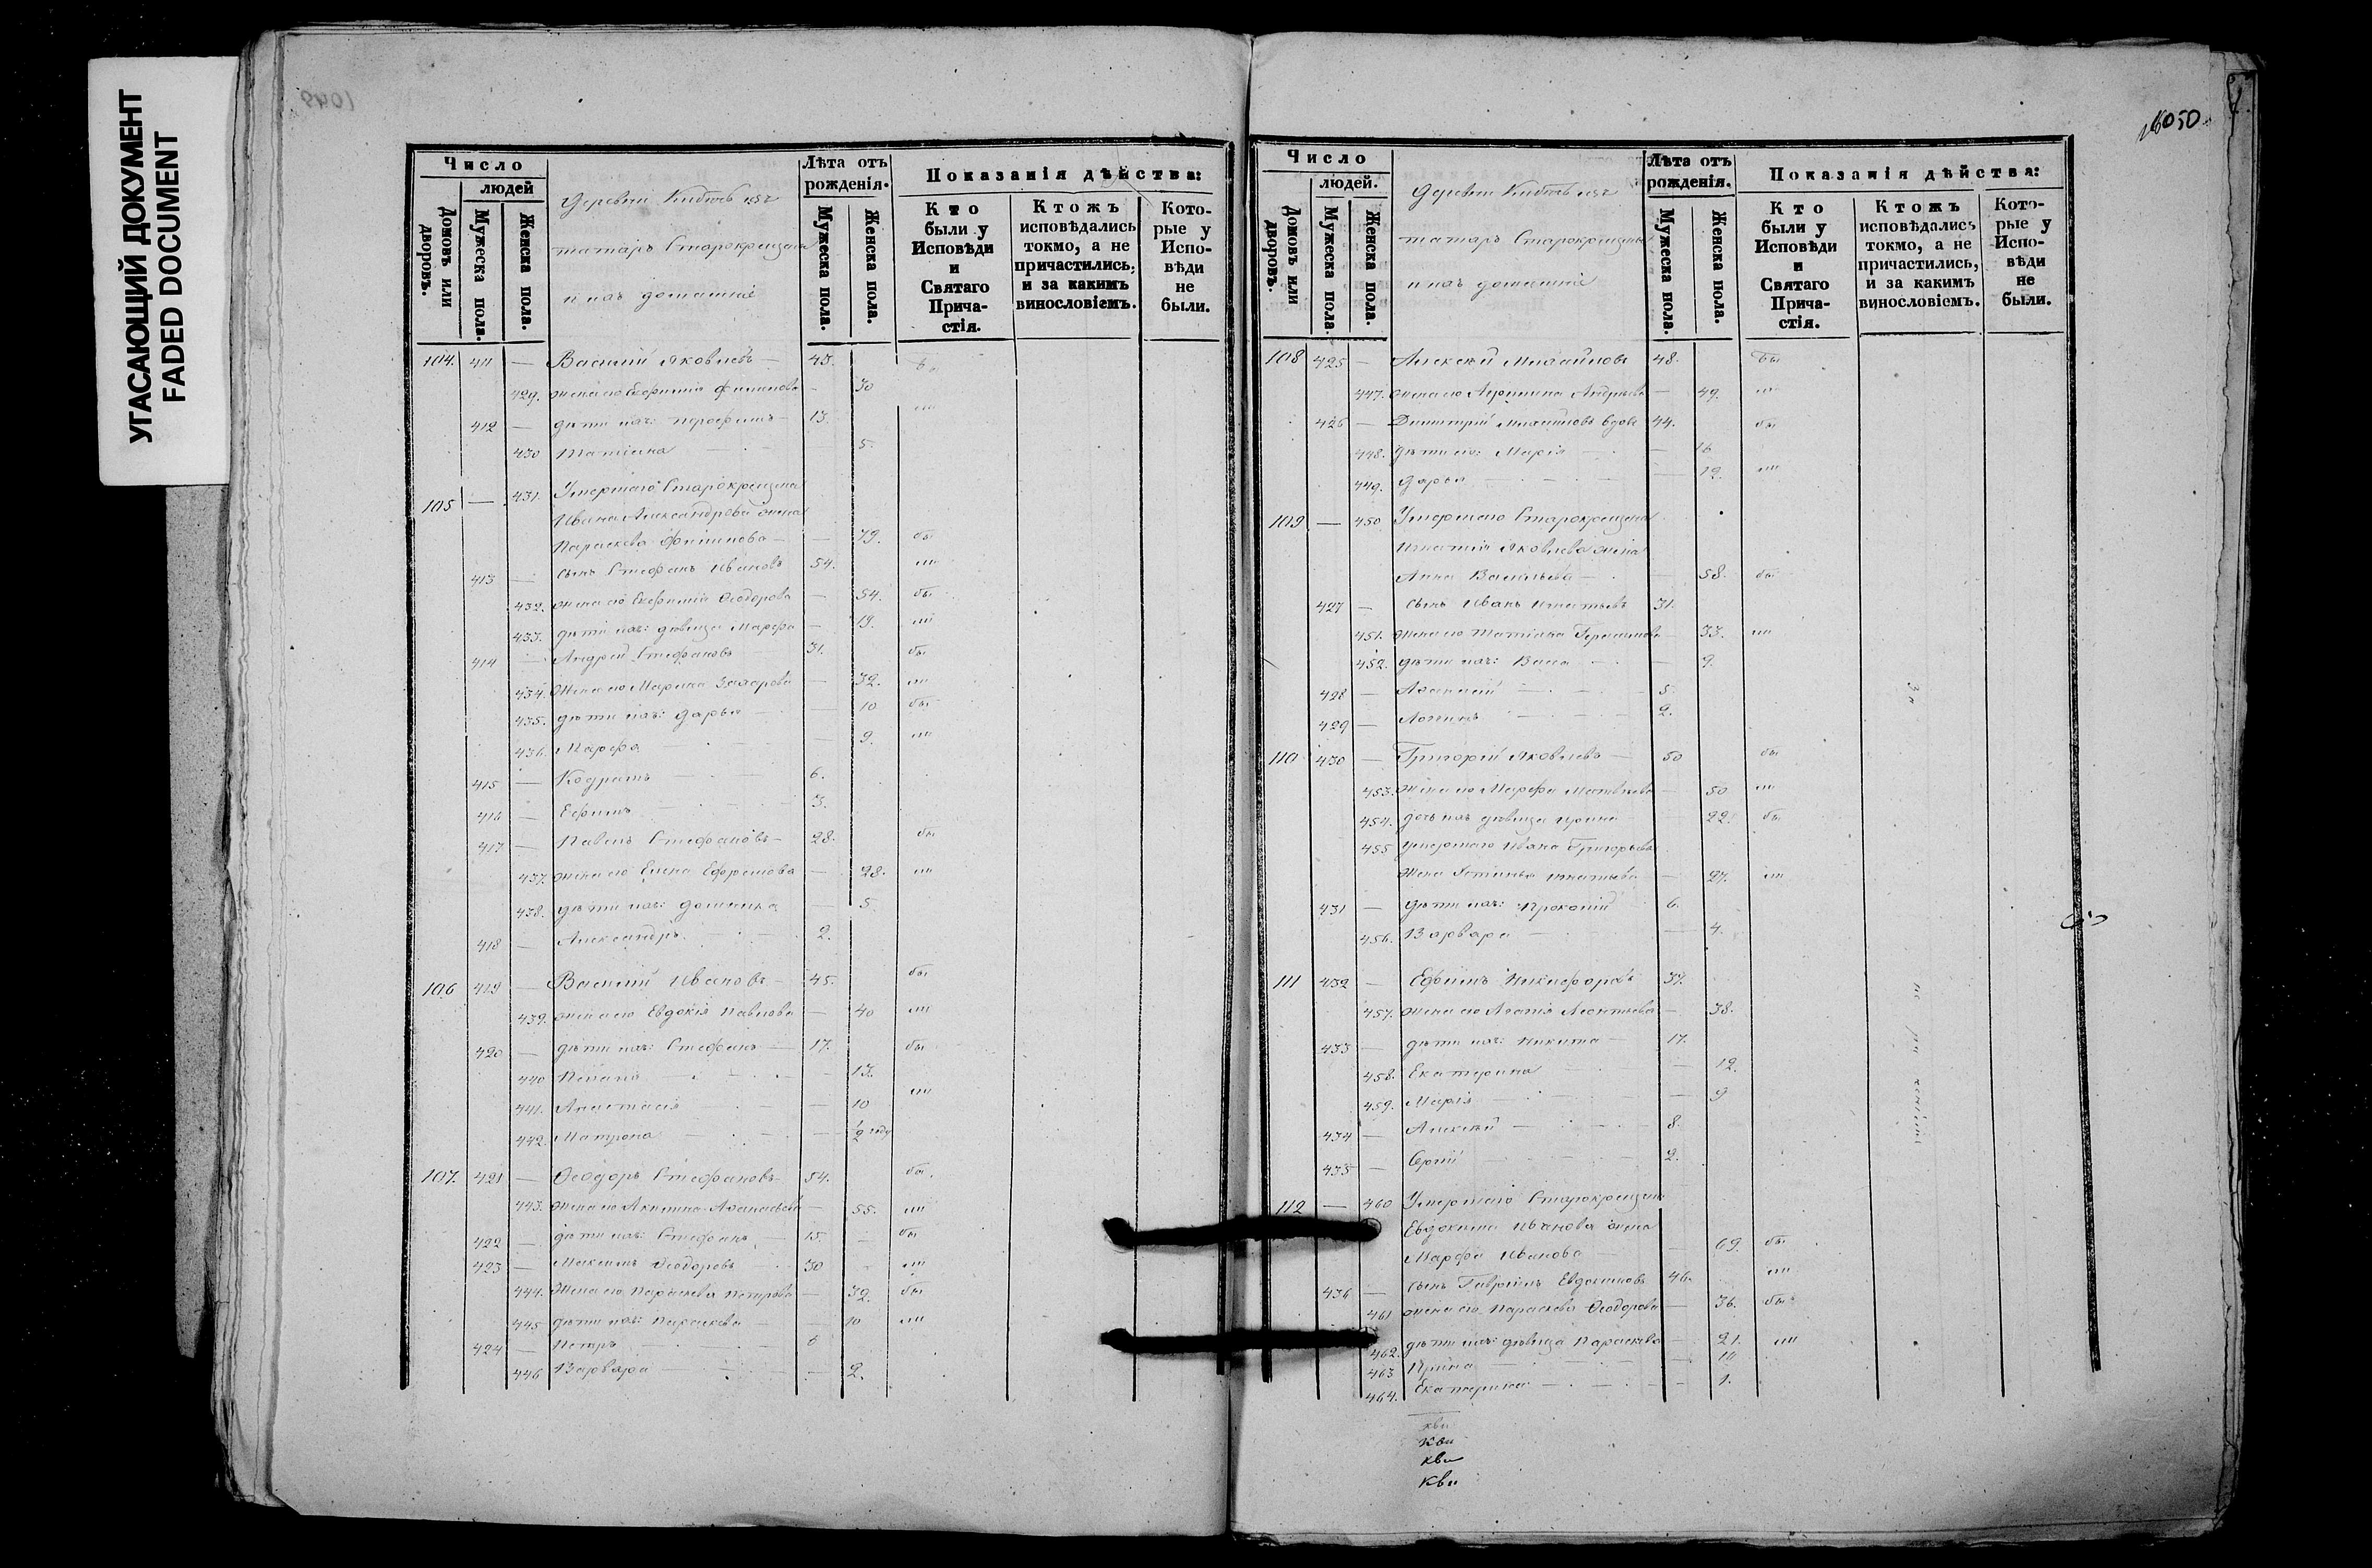 УГАСАЮЩИЙ ДОКУМЕНТ
FADED DOCUMENT
Число
людей
Домовъ или дворовъ.
Мужеска пола.
Женска пола.
Деревни
татаръ Старокрещенъ
и ихъ домашніе
Лѣта отъ рожденія.
Мужеска пола.
Женска пола.
Показанія дѣйства:
Кто были у Исповѣди и Святаго Прича- стія.
Ктожъ исповѣдались токмо, а не причастились, и за какимъ винословіемъ.
Кото- рые у Испо- вѣди не были.
104. 411 — Василий Яковлевъ — 45.
429. жена его Евфимія — 30
412 — дѣти ихъ: — 13.
430 Татіана — 5.
105 — 431. Умершаго Старокрещена
Ивана Александрова жена
Параскева — 79. бы
413 — сынъ Стефанъ Ивановъ 54. ли
432. жена его Евфимія Ѳеодорова — 54. бы
433. дѣти ихъ: дѣвица Марфа — 19. ли
414 — Андрей Стефановъ 31. бы
434. жена его Марина Захарова — 32. ли
435. дѣти ихъ: Дарья — 10 бы
436. Марфа — 9. ли
415 — Кодратъ — 6.
416 — Ефимъ 3.
417 — Павелъ Стефановъ — 28. бы
437. жена его Елена Ефремова — 28. ли
438. дѣти ихъ: Домника — 5.
418 — Александръ — 2.
106 419 — Василий Ивановъ — 45. бы
439. жена его Евдокія Павлова — 40 ли
420 — дѣти ихъ: Стефанъ — 17. бы
440 — 13.
441. Анастасія — 10 ли
442. Матрона — ½ года
107. 421 — Ѳеодоръ Стефановъ 54. бы
443. жена его Акилина Афанасьева — 55. ли
422 — дѣти ихъ: Стефанъ — 15. — бы
423 — Максимъ Ѳеодоровъ 30 ли
444. жена его Параскева Петрова — 32. бы
445 дѣти ихъ: Параскева — 10 ли
424 — Петръ — 6
446 Варвара — 2.
16050
Число
людей.
Домовъ или дворовъ.
Мужеска пола.
Женска пола.
Деревни
татаръ Старокрещенъ
и ихъ домашніе
Лѣта отъ рожденія.
Мужеска пола.
Женска пола.
Показанія дѣйства:
Кто были у Исповѣди и Святаго Прича- стія.
Ктожъ исповѣдались токмо, а не причастились, и за какимъ винословіемъ.
Кото- рые у Испо- вѣди не были.
108 425 — Алексѣй Михайловъ 48. бы
447. жена его Андреева — 49. ли
426 — Димитрій Михайловъ вдовъ 44. бы
448. дѣти его: Марія — 16
449. Дарья — 12. ли
109 — 450 Умершаго Старокрещена
Игнатія Яковлева жена
Анна Васильева — 58. бы
427 — сынъ Иванъ Игнатьевъ 31.
451. жена его Татіана Герасимова 33. ли
452. дѣти ихъ: Васса — 9.
428 — Афанасій — 5.
429 — Логинъ — 2.
110 430 — Григорій Яковлевъ — 50 бы
453. жена его Марфа Матвѣева 50 ли
454. дочь ихъ дѣвица Ирина 22. бы
455 умершаго Ивана Григорьева
жена Устинья Игнатьева — 27. ли
431 — дѣти ихъ: Прокопій 6.
456. Варвара — 4.
111 432 — Ефимъ Никифоровъ 37.
457. жена его Агафія Леонтьева — 38.
433 — дѣти ихъ: Никита — 17.
458. Екатерина — 12.
459. Марія — 9
434 — Алексѣй — 8.
435 — Сергій — 2.
112 — 460 Умершаго Старокрещена
Евдокима Иванова жена
Марфа Иванова — 69. бы
436 — сынъ Гавріилъ Евдокимовъ 46. ли
461 жена его Параскева Ѳеодорова — 36. бы
462. дѣти ихъ: дѣвица Параскева — 21. ли
463 Ирина — 10
464. Екатерина — 1.